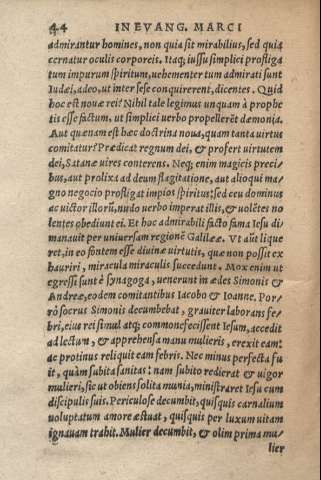 44 IN EVANG. MARCI
admirantur homines, non quia sit mirabilius, sed quia
cernatur oculis corporeis. Itaq; iussu simplici profliga
tum impurum spiritum, uehementer tum admirati sunt
Iudæi, adeo, ut inter sese conquirerent, dicentes. Quid
hoc est nouæ rei? Nihil tale legimus unquam à prophe
tis esse factum, ut simplici uerbo propellerēt dæmonia.
Aut quænam est hæc doctrina noua, quam tanta uirtus
comitatur? Prædicat regnum dei, & profert uirtutem
dei, Satanæ uires conterens. Neq; enim magicis preci/
bus, aut prolixa ad deum flagitatione, aut alioqui ma/
gno negocio profligat impios spiritus: sed ceu dominus
ac uictor illorū, nudo uerbo imperat illis, & uolētes no
lentes obediunt ei. Et hoc admirabili facto fama Iesu di
manauit per uniuersam regionē Galilææ. Vt aūt lique
ret, in eo fontem esse diuinæ uirtutis, quæ non possit ex
hauriri, miracula miraculis succedunt. Mox enim ut
egressi sunt è synagoga, uenerunt in ædes Simonis &
Andreæ, eodem comitantibus Iacobo & Ioanne. Por/
rò socrus Simonis decumbebat, grauiter laborans fe/
bri, eius rei simul atq; commonefecissent Iesum, accedit
ad lectum, & apprehensa manu mulieris, erexit eam:
ac protinus reliquit eam febris. Nec minus perfecta fu
it, quàm subita sanitas: nam subito redierat & uigor
mulieri, sic ut obiens solita munia, ministraret Iesu cum
discipulis suis. Periculose decumbit, quisquis carnalium
uoluptatum amore æstuat, quisquis per luxum uitam
ignauam trahit. Mulier decumbit, & olim prima mu/
lier